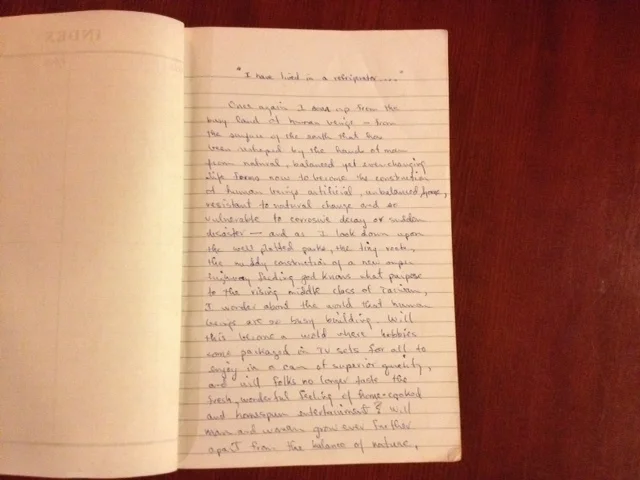 INDEX
"I have lived in a refrigerator...."
Once again I soar up from the
busy land of human beings - from
the surface of the earth that has
been reshaped by the hands of man
from natural, balanced yet ever-changing
life forms now to become the construction
of human beings artificial, unbalanced,
resistant to natural change and so
vulnerable to corrosive decay or sudden
disaster — and as I look down upon
the well plotted parks, the tiny
the muddy construction of a new super
highway god knows what purpose
to the rising middle class of Taiwan,
I wonder about the world that human
beings are so busy building. Will
this become a world where hobbies
come packaged on TV sets for all to
enjoy in a can of superior quality,
and will folks no longer taste the
fresh, wonderful feeling of home-cooked
and homespun entertainment? Will
man and woman grow ever further
apart from the balance of nature,